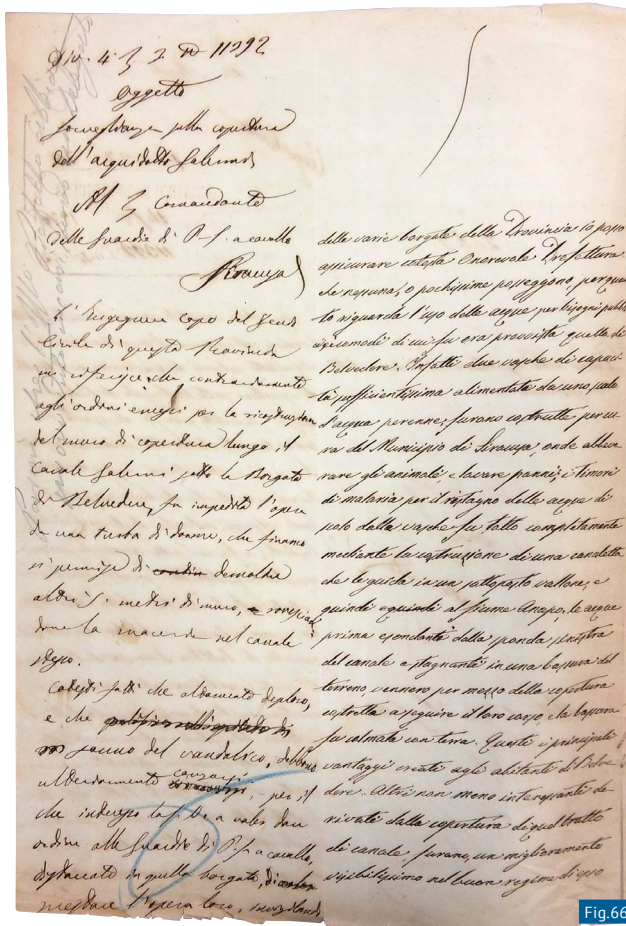 Div. 4. 3 2 N 11292
Oggetto
Sorveglianza sulla copertura
dell'acquidotto Galermi
Al Comandante
delle Guardie di P. S. a cavallo
Siracusa
L'Ingegnere Capo del Genio
Civile di questa Provincia
mi riferisce che contrariamente
agli ordini emessi per la ricostruzione
del muro di copertura lungo il
canale Galermi sotto la Borgata
di Belvedere, fu impedita l'opera
da una turba di donne, che financo
si permise di demolire
altri 5. metri di muro, rovescian
done la macerie nel canale
stesso.
Codesti fatti che altamente deploro,
e che
sanno del vandalico, debbono
per il
che interesso la S. V. a voler dare
ordine alle Guardie di P. S. a cavallo,
distaccate in quella borgata, di
prestare l'opera loro,
delle varie borgate della Provincia io posso
assicurare cotesta Onorevole Prefettura
che nessuna, o pochissime posseggono, per quan
to riguarda l'uso delle acque per bisogni pubbli
ci, comodi di cui fu ora provvista quella di
Belvedere. Infatti due vasche di capaci
tà sufficientissima alimentate da uno zampillo
d'acqua perenne, furano costrutte, per cu
ra del Municipio di Siracusa, onde abbeve
rare gli animali, e lavare panni; i timori
di malaria per il ristagno delle acque di
scolo dalle vasche fu tolto completamente
mediante la costruzione di una canaletta
che le guida in un sottoposto vallone, e
quindi al fiume Anapo, le acque
prima esondanti dalla sponda sinistra
del canale e stagnanti in una bassura del
terreno, vennero per mezzo della copertura
costrette a seguire il loro corso, e la bassura
fu colmata con terra. Questi i principali
vantaggi creati agli abitanti di Belve
dere. Altri non meno interessanti de
rivati dalla copertura di quel tratto
di canale, furano, un miglioramento
visibilissimo nel buon regime di esso
Fig.66